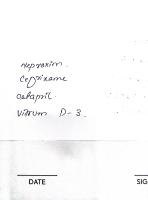 Naproxim.
Cefixeme
Calapril
Vitrum D-3.
DATE
SIG